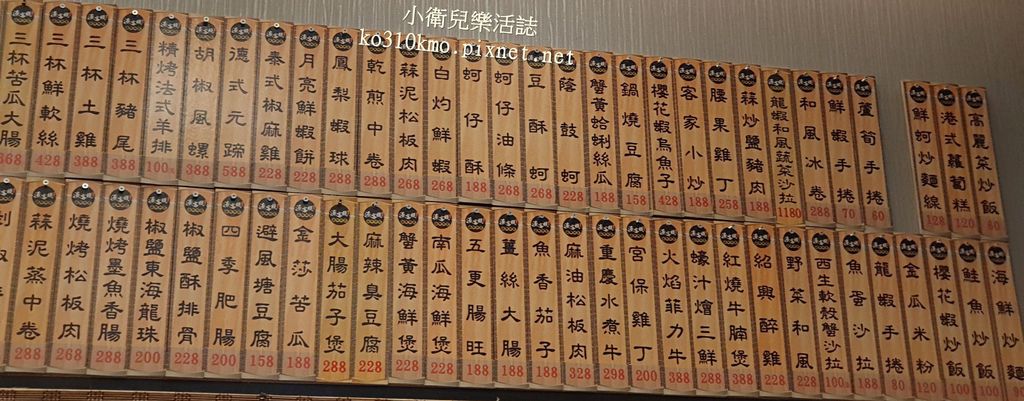 小衛兒樂活誌
ko310kmo.pixnet.net
三杯苦瓜大腸 368
三杯鮮軟絲 428
三杯土雞 388
三杯豬尾 388
精烤法式羊排 100
胡椒風螺 388
德式元蹄 588
泰式椒麻雞 228
月亮鮮蝦餅 228
鳳梨蝦球 288
乾煎中卷 288
蒜泥松板肉 268
白灼鮮蝦 268
蚵仔酥 188
蚵仔油條 268
豆酥蚵 268
蔭鼓蚵 228
蟹黃蛤蜊絲瓜 188
鍋燒豆腐 158
櫻花蝦烏魚子 428
客家小炒 188
腰果雞丁 258
蒜炒鹽豬肉 188
龍蝦和風蔬菜沙拉 1180
和風冰卷 288
鮮蝦手捲 70
蘆筍手捲 60
鮮蚵炒麵線 128
港式蘿蔔糕 120
高麗菜炒飯 80
蒜泥蒸中卷 288
燒烤松板肉 268
燒烤墨魚香腸 288
椒鹽東海龍珠 200
椒鹽酥排骨 228
四季肥腸 200
避風塘豆腐 158
金莎苦瓜 188
大腸茄子煲 288
麻辣臭豆腐 228
蟹黃海鮮煲 228
南瓜海鮮煲 228
五更腸旺 188
薑絲大腸 188
魚香茄子 188
麻油松板肉 328
重慶水煮牛 298
宮保雞丁 200
火焰菲力牛 388
蠔汁燴三鮮 288
紅燒牛腩煲 388
紹興醉雞 228
野菜和風 228
西生軟殼蟹沙拉 100
魚蛋沙拉 188
龍蝦手捲 80
金瓜米粉 120
櫻花蝦炒飯 100
鮭魚炒飯 100
海鮮炒麵